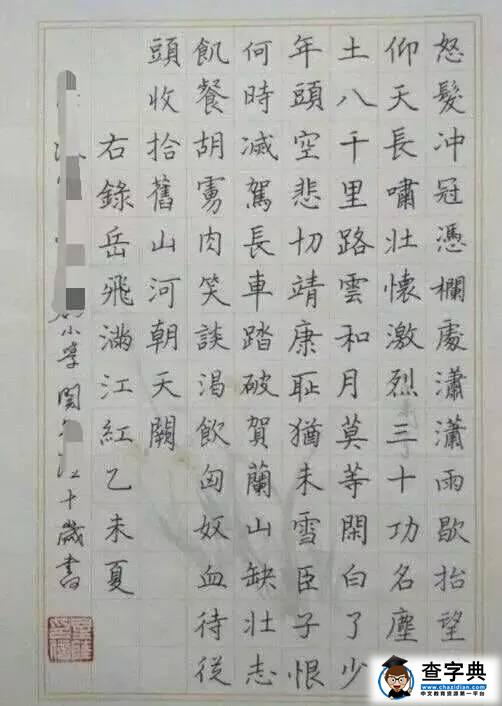 怒髮冲冠憑欄處瀟瀟雨歇抬望
仰天長嘯壯懷激烈三十功名塵
土八千里路雲和月莫等閑白了少
年頭空悲切靖康恥猶未雪臣子恨
何時滅駕長車踏破賀蘭山缺壯志
飢餐胡虜肉笑談渴飲匈奴血待從
頭收拾舊山河朝天闕
右錄岳飛滿江紅乙未夏
小學 十歲書
查字典
www.chazidian.com
中文教育资源第一平台